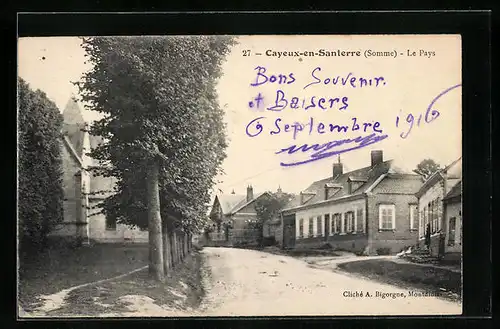 27 - Cayeux-en-Santerre (Somme) - Le Pays
Bons Souvenir.
et Baisers
6 Septembre 1916
Cliché A. Bigorgne,